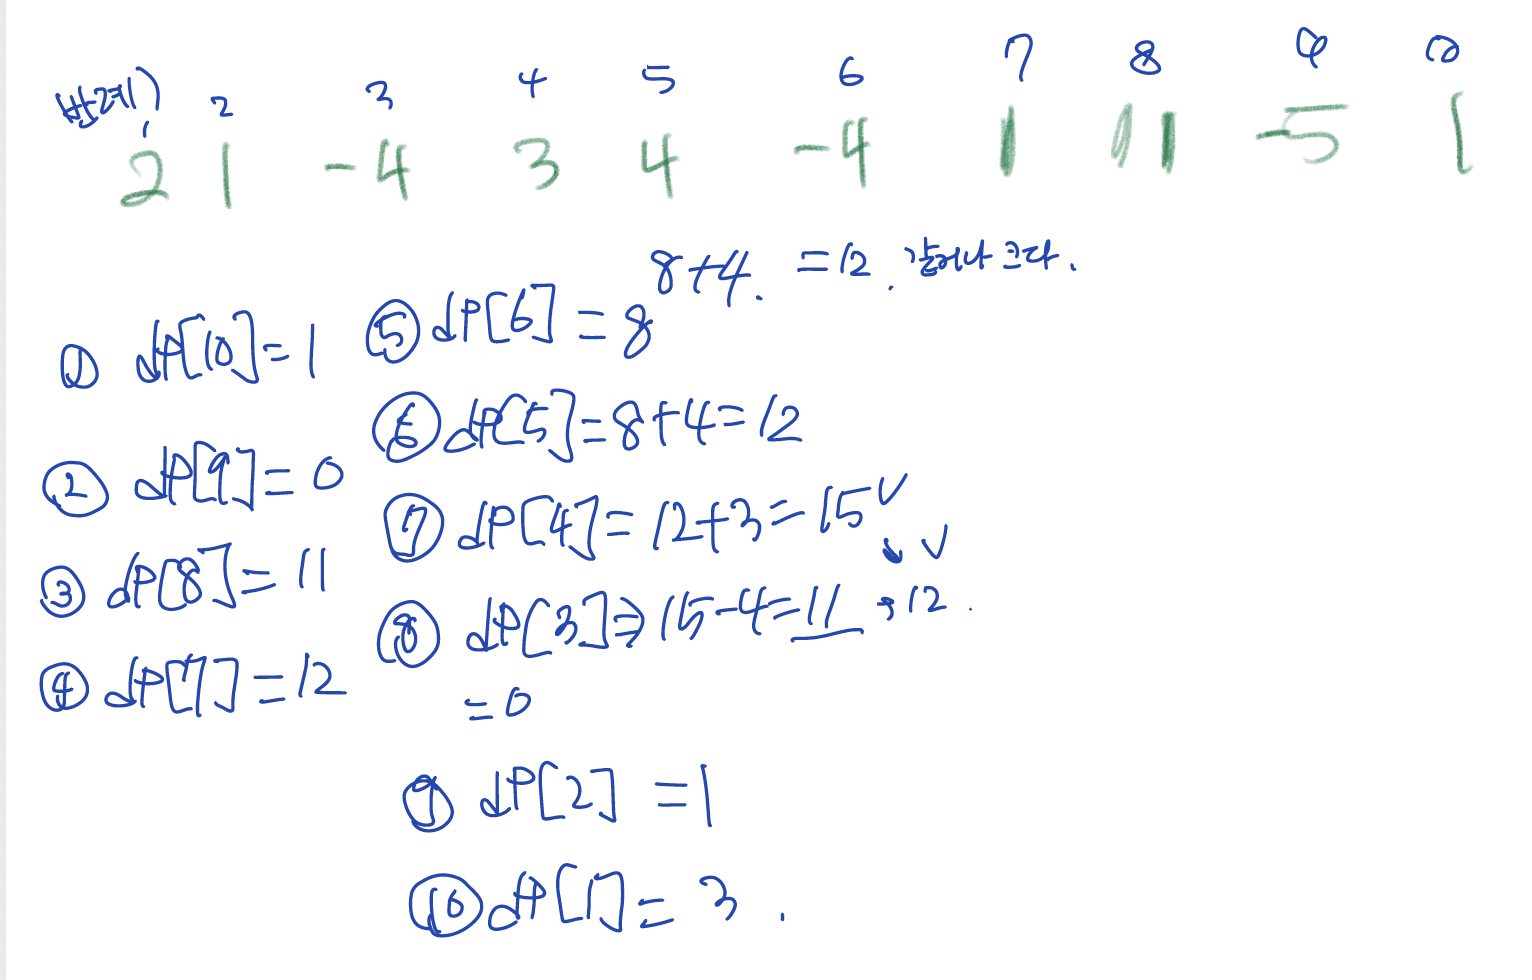 반례1)
1 2 3 4 5 6 7 8 9 10
2 1 -4 3 4 -4 1 11 -5 1
8+4. =12. 같거나 크다.
① dp[10]=1
② dp[9]=0
③ dp[8]=11
④ dp[7]=12
⑤ dp[6]=8
⑥ dp[5]=8+4=12
⑦ dp[4]=12+3=15 v
↓ v
⑧ dp[3]⇒15-4=11 →12.
=0
⑨ dp[2] =1
⑩ dp[1]= 3.